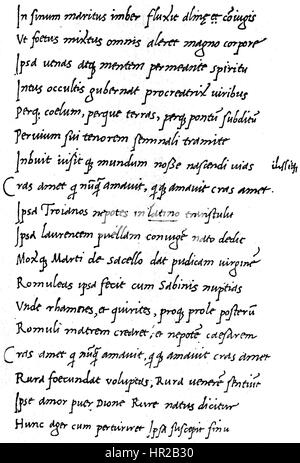 In sinum maritus imber fluxit almę coniugis
Ut foetus mixtus omnis aleret magno corpore
Ipsa venas atq; mentem permeante spiritu
Intus occultis gubernat procreatrix viribus
Perq; coelum, perque terras, perq; pontũ subditũ
Pervium sui tenorem seminali tramite
Inbuit iusitq; mundum nosse nascendi vias
Cras amet q̃ nũq̃ amavit, q̃q; amavit cras amet.
Ipsa Troianos nepotes in latino transtulit
Ipsa laurentem puellam coniugẽ nato dedit
Moxq; Marti de sacello dat pudicam virginẽ
Romuleas ipsa fecit cum Sabinis nuptias
Unde rhamnes, et quirites, proq; prole posterũ
Romuli matrem crearet, et nepotẽ caesarem
Cras amet q̃ nũq̃ amavit, q̃q; amavit cras amet
Rura foecundat voluptas, Rura venerẽ sentiũt
Ipse amor puer Dione Rure natus dicitur
Hunc ager cum parturiret Ipsa suscepit sinu
alamy
HR2B30